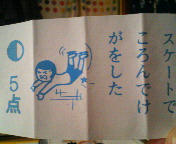 スケートで
ころんでけ
がをした
5点